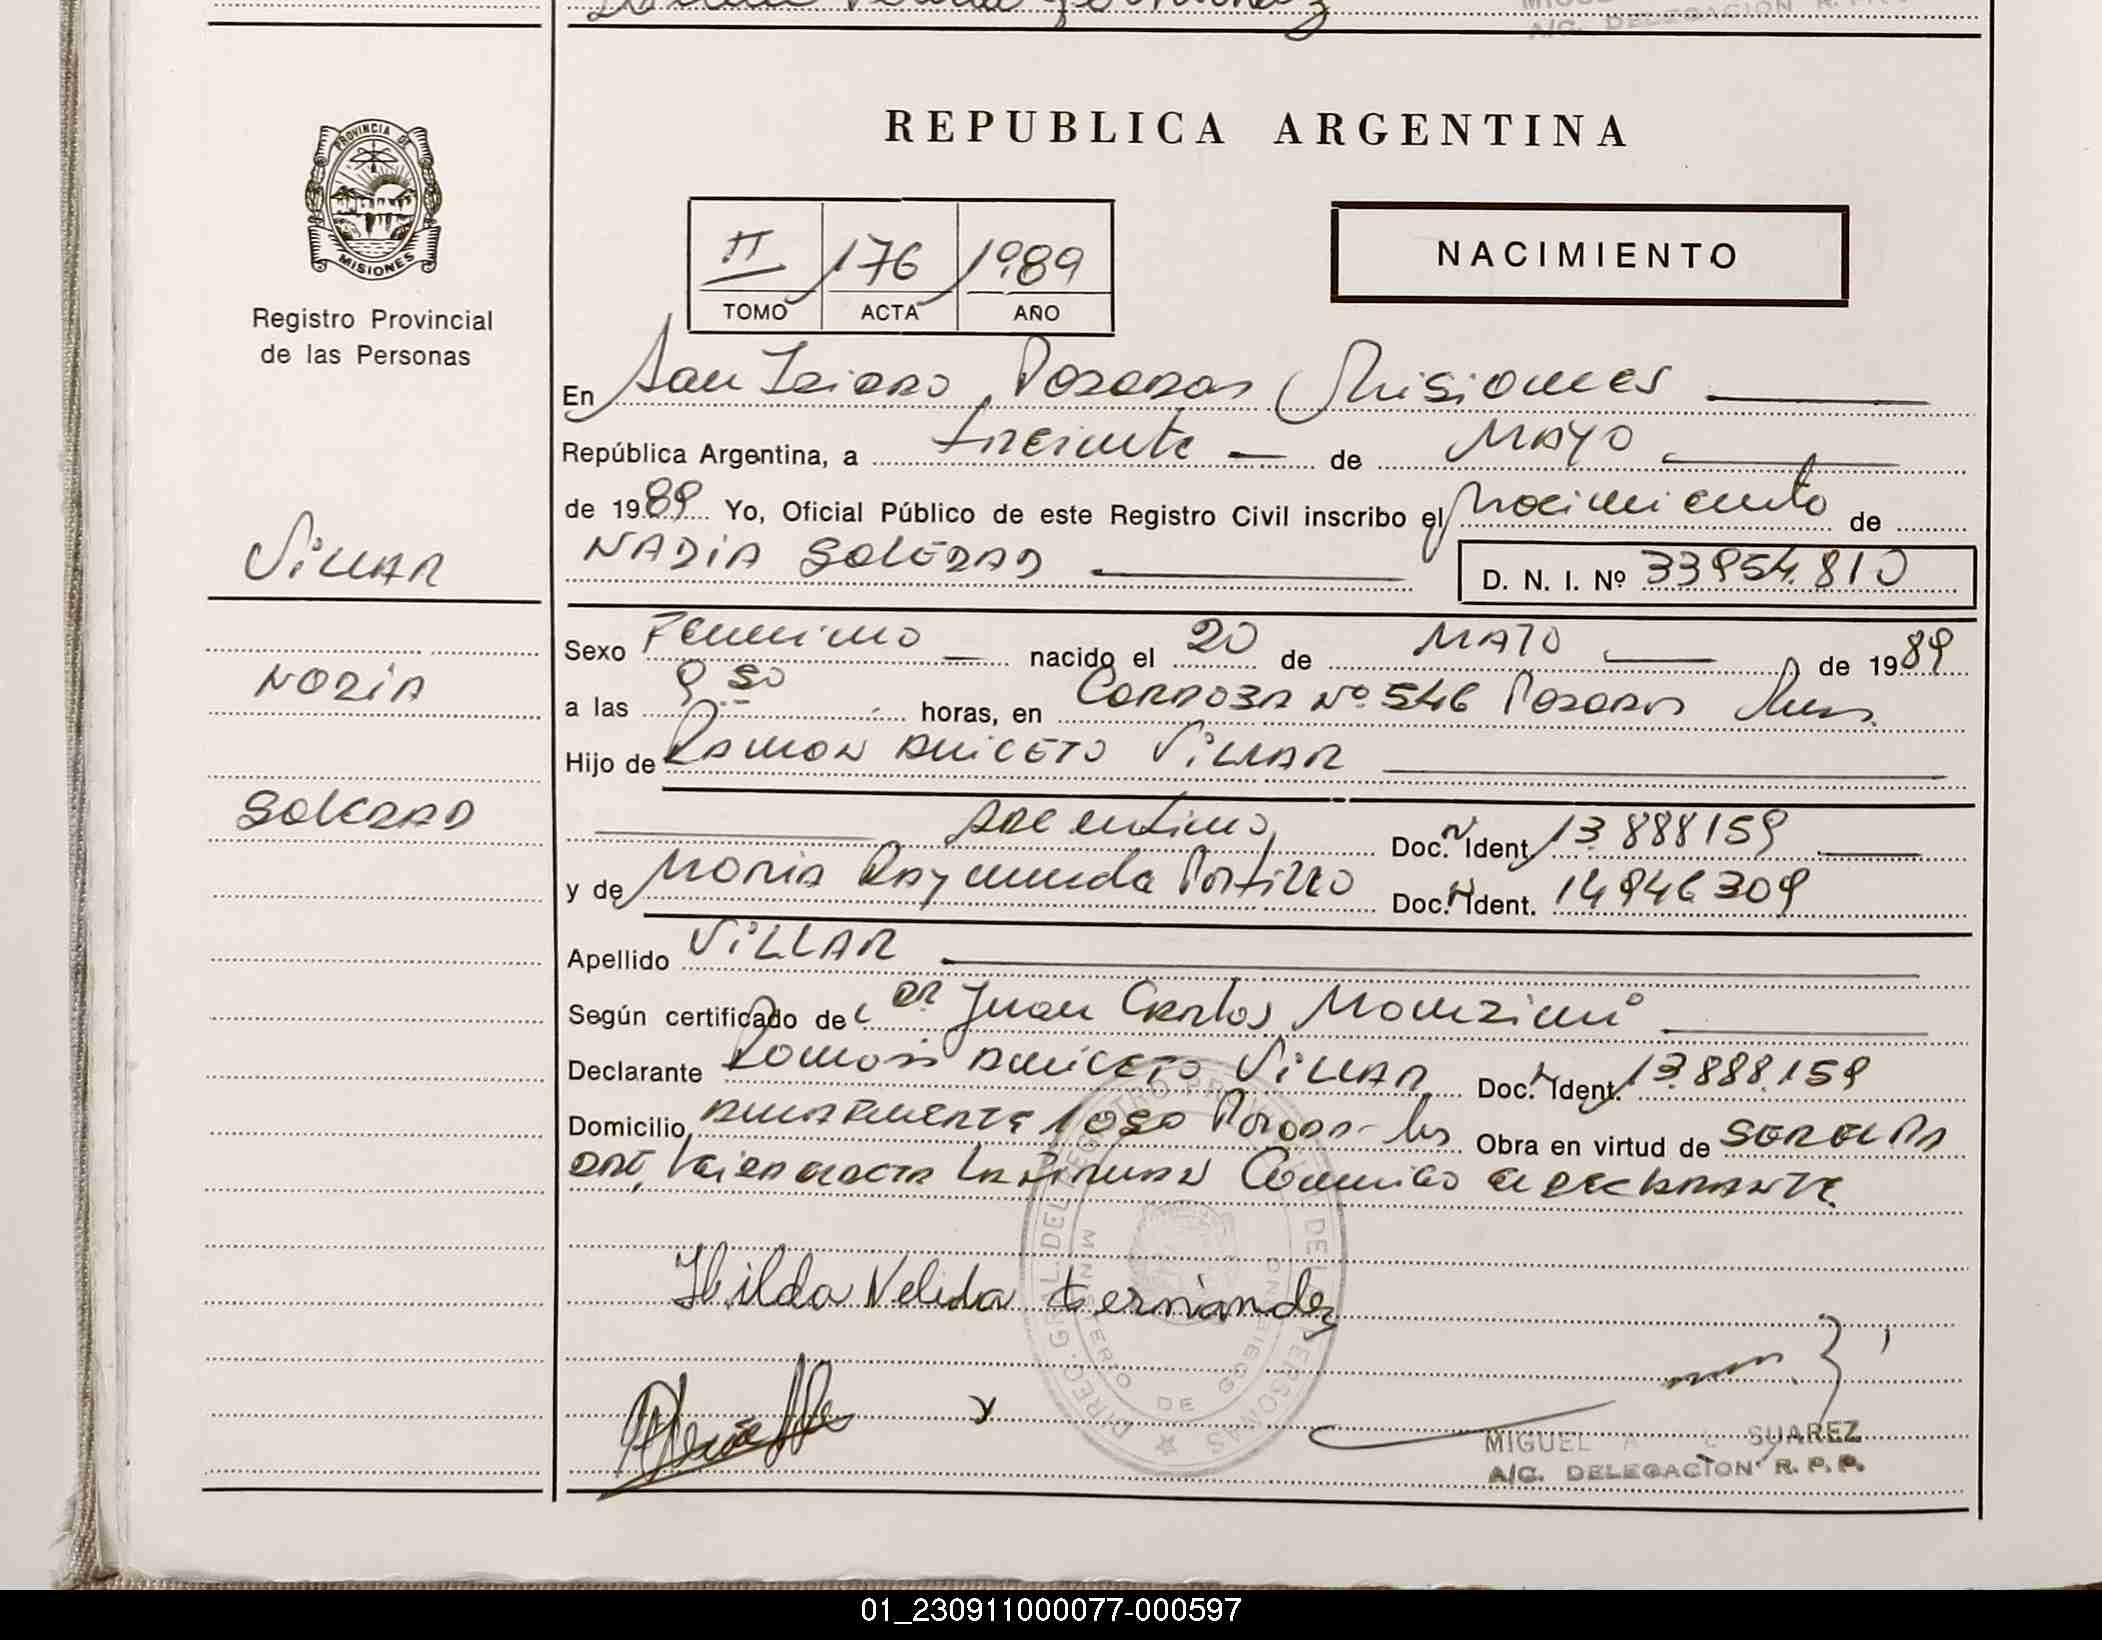 PROVINCIA DE
MISIONES
Registro Provincial
de las Personas
VILLAR
NADIA
SOLEDAD
REPUBLICA ARGENTINA
II 176 1989
TOMO ACTA AÑO
NACIMIENTO
En San Isidro Posadas Misiones
República Argentina, a treinta de MAYO
de 1989 Yo, Oficial Público de este Registro Civil inscribo el Nacimiento de
NADIA SOLEDAD D. N. I. Nº 33954.810
Sexo Femenino nacido el 20 de MAYO de 1989
a las horas, en CORDOBA Nº 546 Posadas Mnes.
Hijo de RAMON ANICETO VILLAR
Argentino Doc. N Ident 13.888159
y de MARIA Raymunda Portillo Doc. N Ident. 14946309
Apellido VILLAR
Según certificado de Juan Carlos
Declarante RAMON ANICETO VILLAR Doc. N Ident. 13.888.159
Domicilio ALMAFUERTE Posadas Obra en virtud de SER EL PA
DRE, Leida el acta LA FIRMAN Conmigo el declarante
Hilda Velida Fernández
DIREC. GRAL. DEL REGISTRO PROVINCIAL DE LAS PERSONAS
MINISTERIO DE GOBIERNO
MIGUEL A SUAREZ
A/C. DELEGACION R. P. P.
01_230911000077-000597